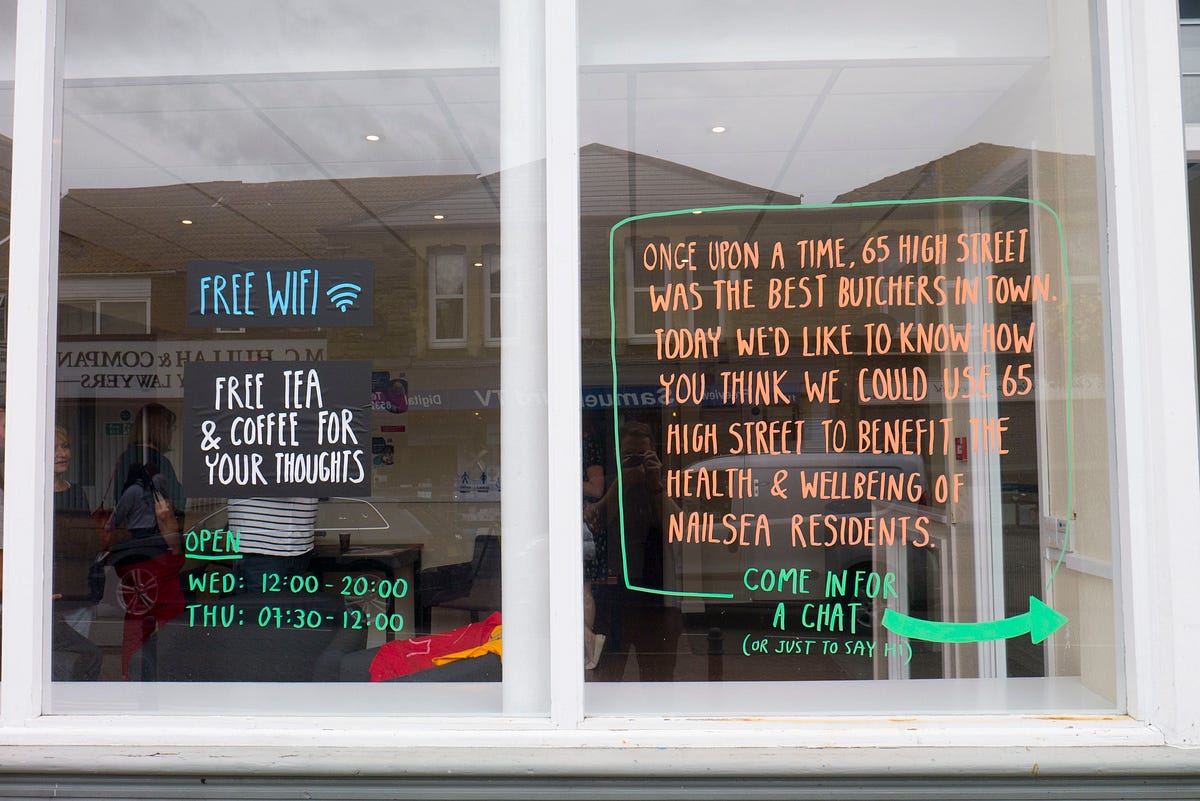 FREE WIFI
FREE TEA
& COFFEE FOR
YOUR THOUGHTS
OPEN
WED: 12:00 - 20:00
THU: 07:30 - 12:00
ONCE UPON A TIME, 65 HIGH STREET
WAS THE BEST BUTCHERS IN TOWN.
TODAY WE'D LIKE TO KNOW HOW
YOU THINK WE COULD USE 65
HIGH STREET TO BENEFIT THE
HEALTH & WELLBEING OF
NAILSEA RESIDENTS.
COME IN FOR
A CHAT
(OR JUST TO SAY HI)
MC HULLAH & COMPAN
Y LAWYERS
Digital
TV
Samue